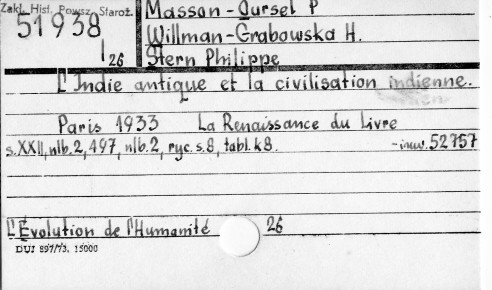 Zakł. Hist. Powsz. Staroż.
51938
I 26
Masson-Oursel P
Willman-Grabowska H.
Stern Philippe
L'Indie antique et la civilisation indienne.
Paris 1933 La Renaissance du Livre
s.XXII, nlb.2, 497, nlb.2, ryc. s.8, tabl. k8. -inw. 52757
L'Évolution de l'Humanité 26
DUJ 897/73. 15000